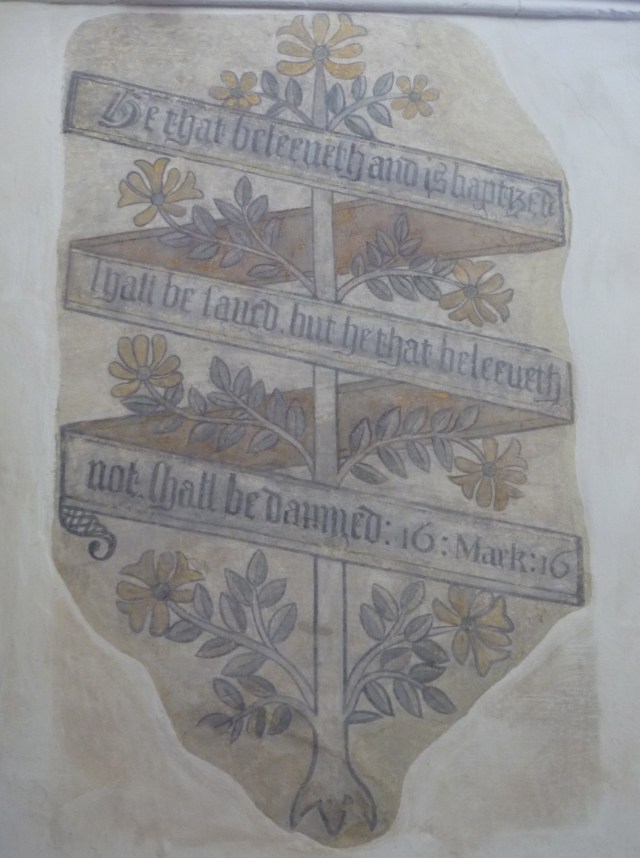 He that beleeueth and is baptized
shall be saued. but he that beleeueth
not. shall be damned: 16: Mark: 16